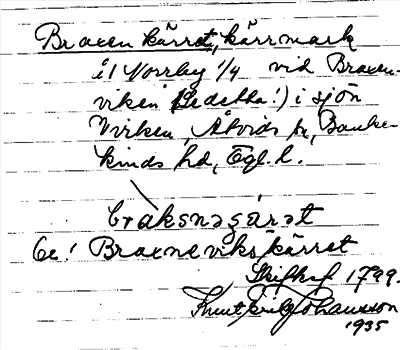 Braxen kärret, kärrmark
i 1 Norrby 1/4 vid Braxen-
viken (Se detta!) i sjön
Yrken, Åtvids sn, Banke-
kinds hd, Ögl. l.
braksnəgárət
Ce! Braxneviks kärret
Skifteh 1799.
Knut Erik Johansson
1935